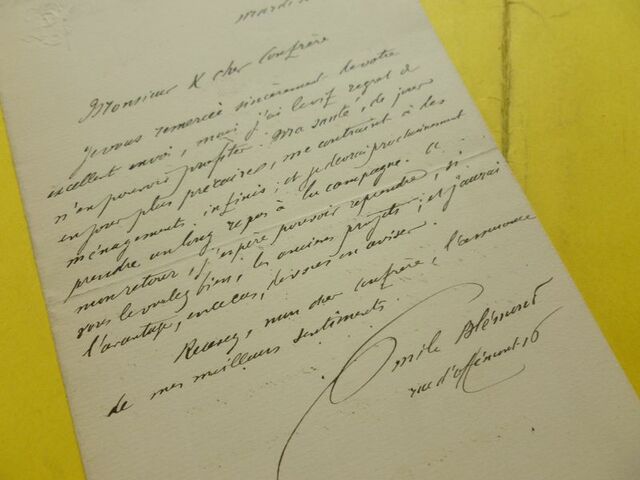 mardi
Monsieur & cher Confrère
Je vous remercie sincèrement de votre
excellent envoi, mais j'ai le vif regret de
n'en pouvoir profiter. Ma santé, de jour
en jour plus précaire, me contraint à des
ménagements infinis; et je devrai prochainement
prendre un long repos à la campagne. A
mon retour, j'espère pouvoir reprendre, si
vous le voulez bien, les anciens projets; et j'aurai
l'avantage, en ce cas, de vous en aviser.
Recevez, mon cher confrère, l'assurance
de mes meilleurs sentiments.
Emile Blémont
rue d'offémont 16